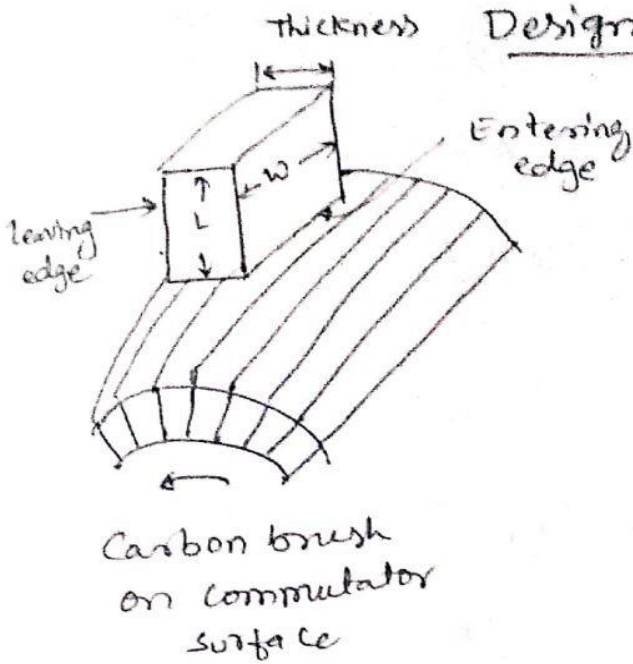 Thickness
Design
Entering
edge
W
L
leaving
edge
Carbon brush
on commutator
surface